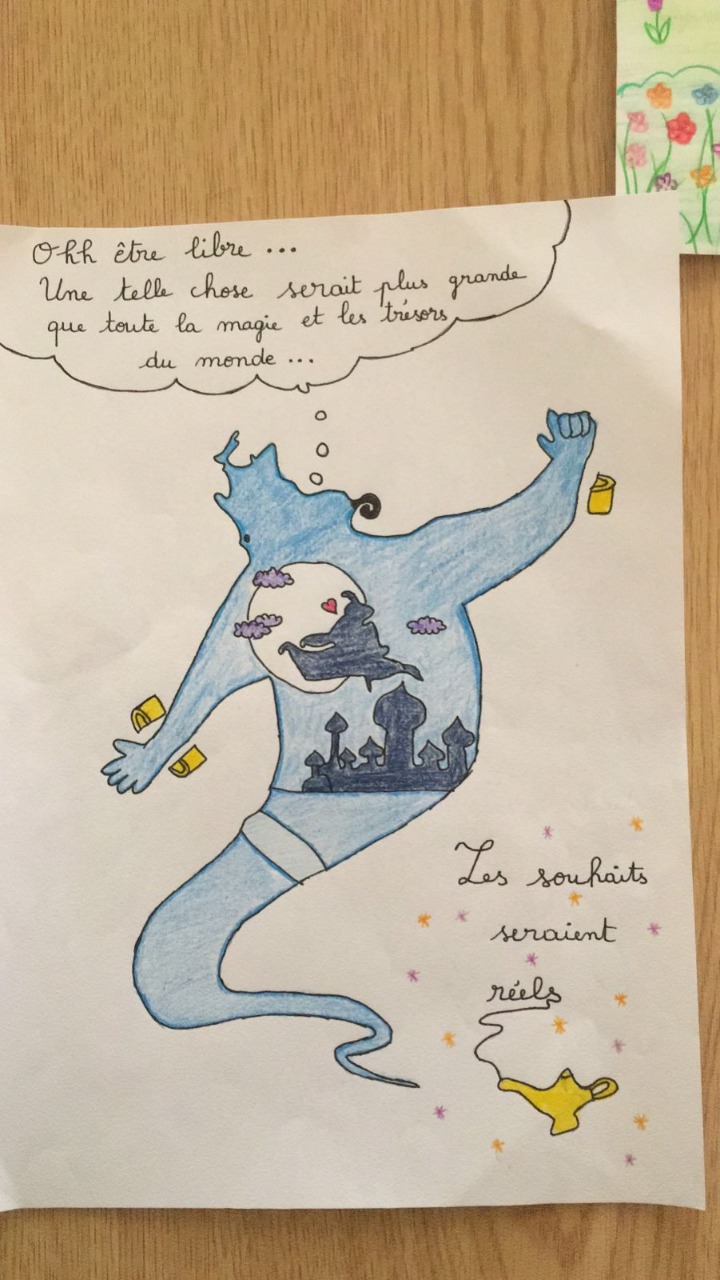 Ohh être libre ...
Une telle chose serait plus grande
que toute la magie et les trésors
du monde ...
Les souhaits
seraient
réels